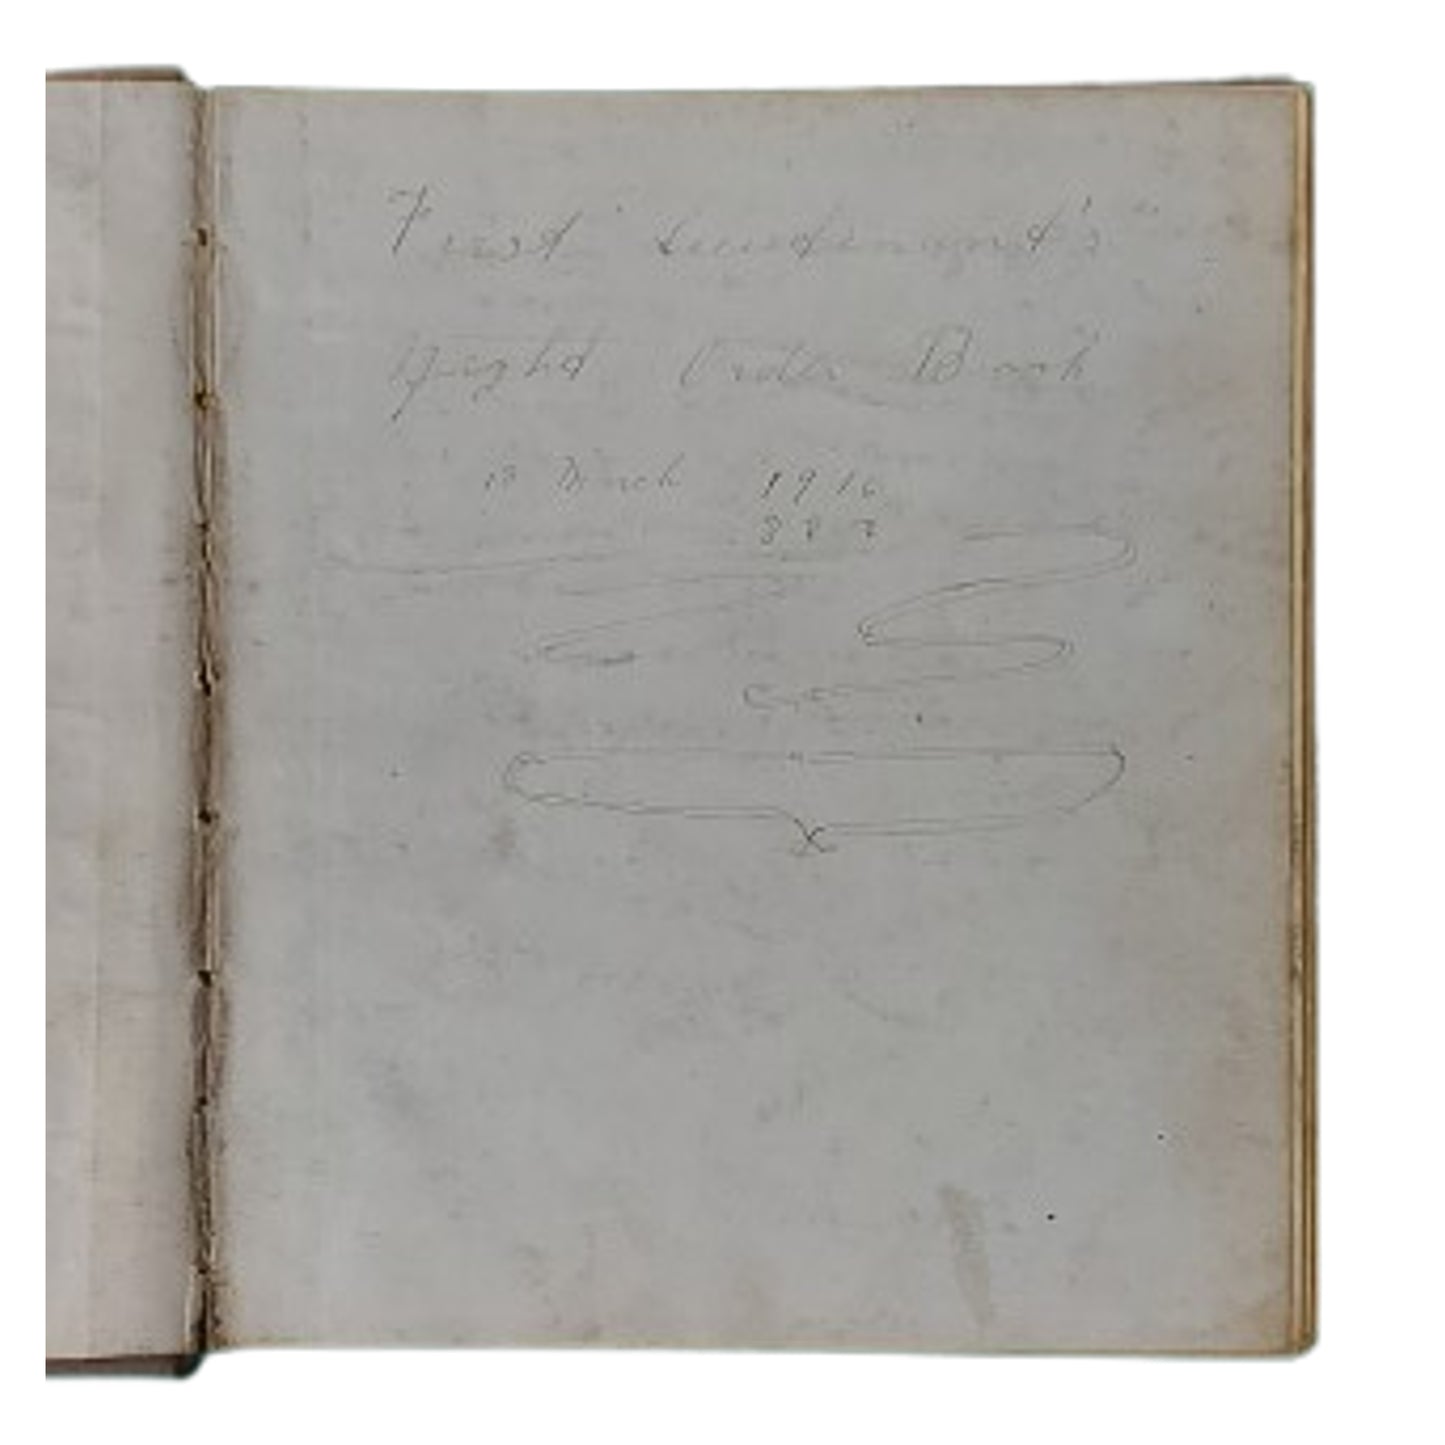 First Lieutenant's
Night Order Book
March 1916